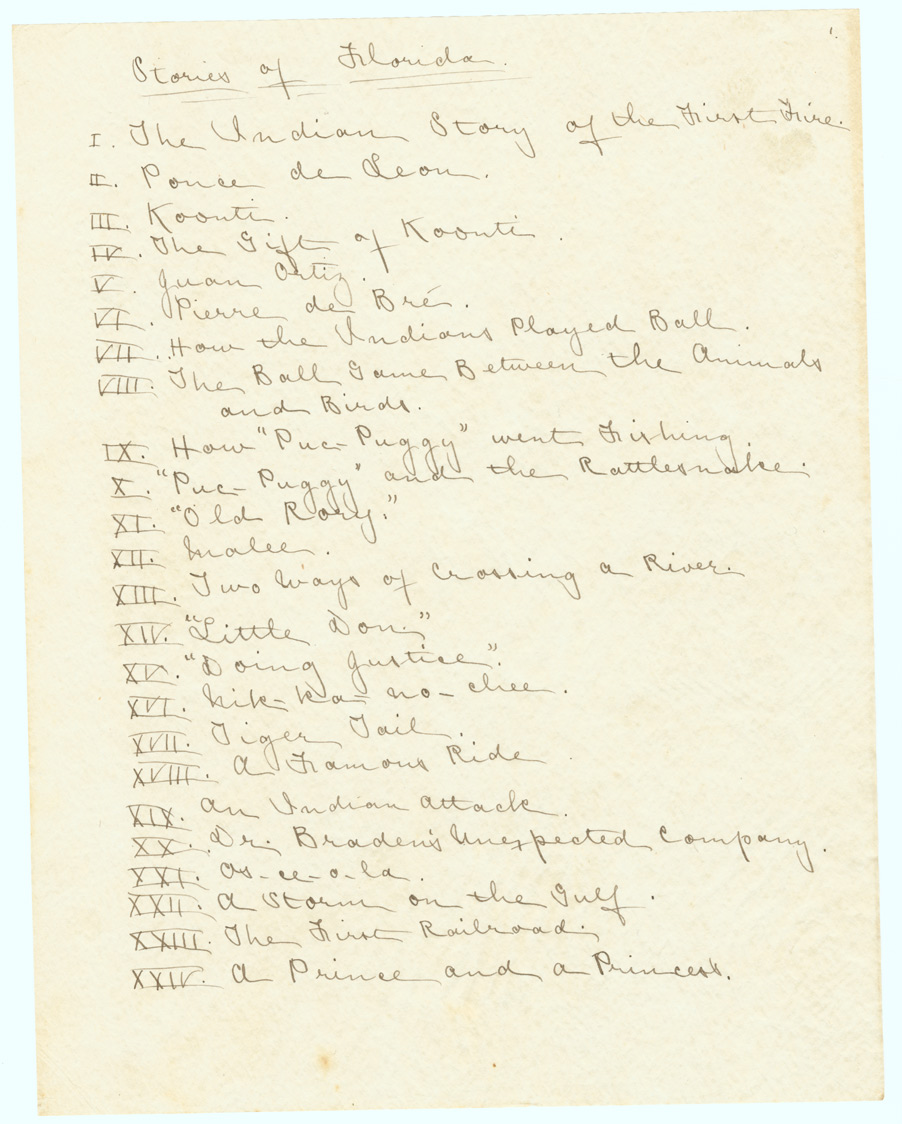 1.
Stories of Florida.
I. The Indian Story of the First Fire.
II. Ponce de Leon.
III. Koonti.
IV. The Gift of Koonti.
V. Juan Ortiz.
VI. Pierre de Bré.
VII. How the Indians Played Ball.
VIII. The Ball Game Between the Animals
and Birds.
IX. How "Puc-Puggy" went Fishing.
X. "Puc-Puggy" and the Rattlesnake.
XI. "Old Rory."
XII. Malee.
XIII. Two Ways of Crossing a River.
XIV. "Little Don."
XV. "Doing Justice".
XVI. Nik-ka-no-chee.
XVII. Tiger Tail.
XVIII. A Famous Ride
XIX. An Indian Attack.
XX. Dr. Braden's Unexpected Company.
XXI. Os-ce-o-la.
XXII. A Storm on the Gulf.
XXIII. The First Railroad.
XXIV. A Prince and a Princess.